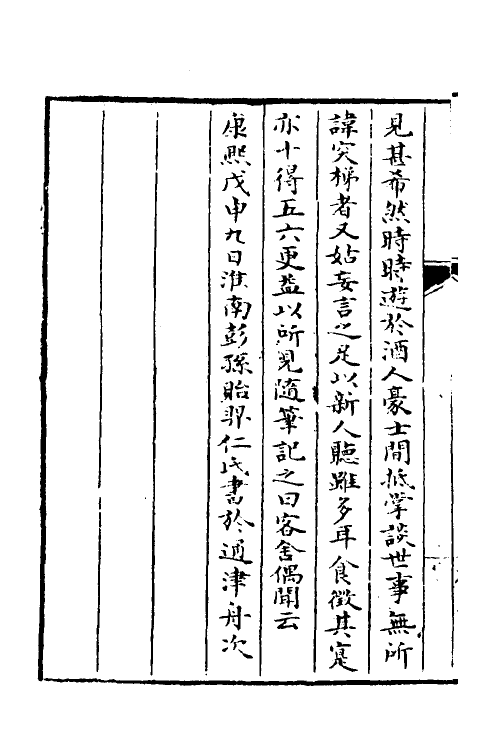 見甚希然時時遊於酒人豪士間抵掌談世事無所
諱突梯者又姑妄言之足以新人聽雖多耳食徵其寔
亦十得五六更益以所見隨筆記之曰客舍偶聞云
康熙戊申九日淮南彭孫貽羿仁氏書於通津舟次